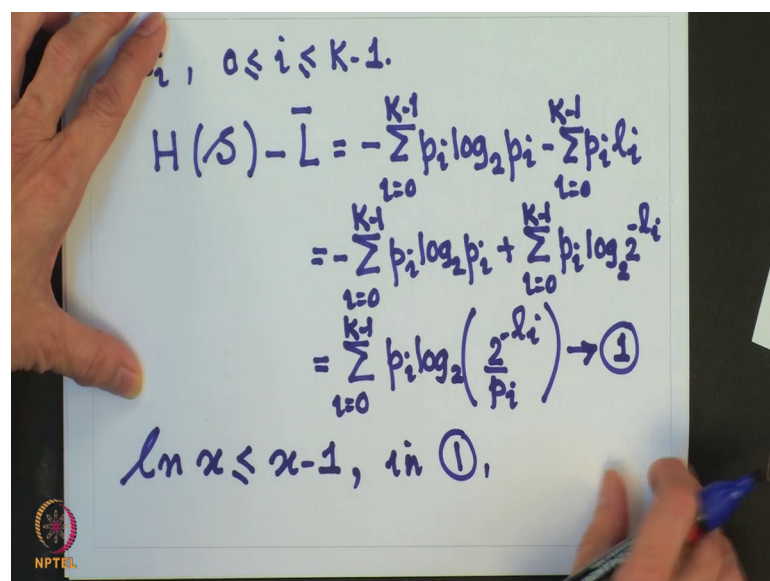 i, 0 ≤ i ≤ K-1.
H(S) - L̄ = -∑_{i=0}^{K-1} p_i log_2 p_i - ∑_{i=0}^{K-1} p_i l_i
= -∑_{i=0}^{K-1} p_i log_2 p_i + ∑_{i=0}^{K-1} p_i log_2 2^{-l_i}
= ∑_{i=0}^{K-1} p_i log_2 (2^{-l_i} / p_i) → ①
ln x ≤ x-1, in ①,
NPTEL